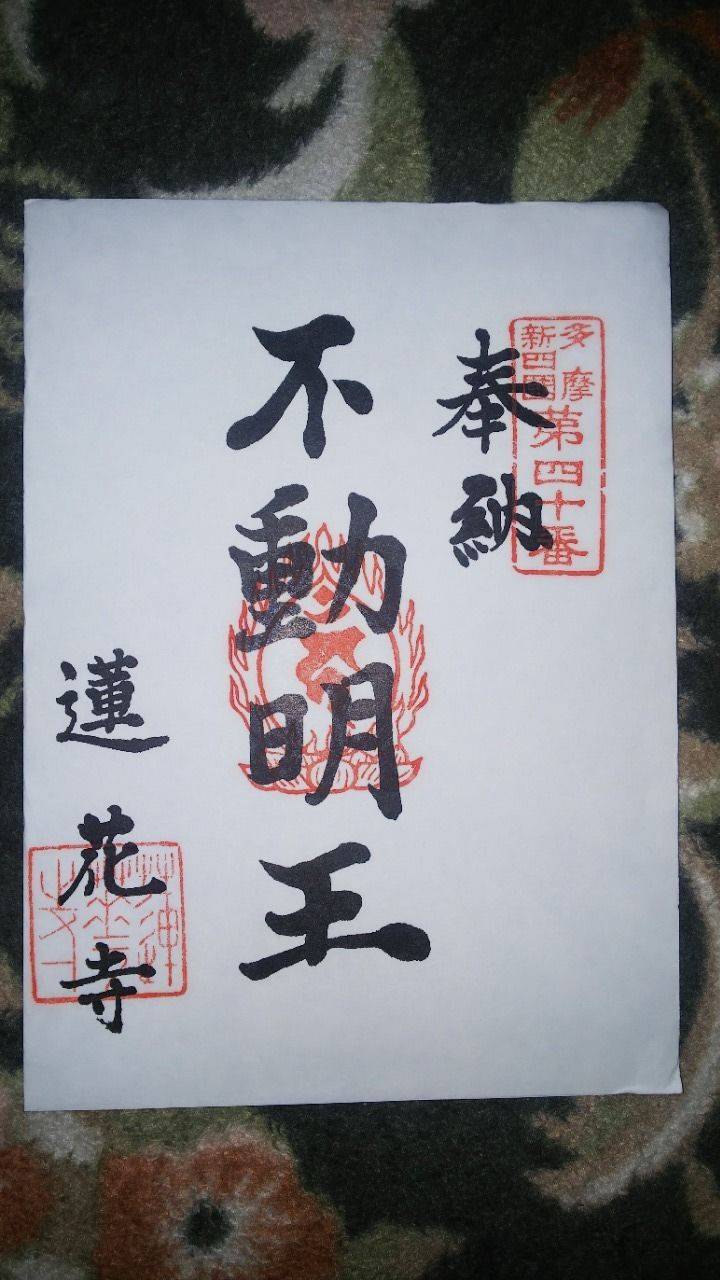 多摩
新四国
第四十番
奉納
不動明王
蓮花寺